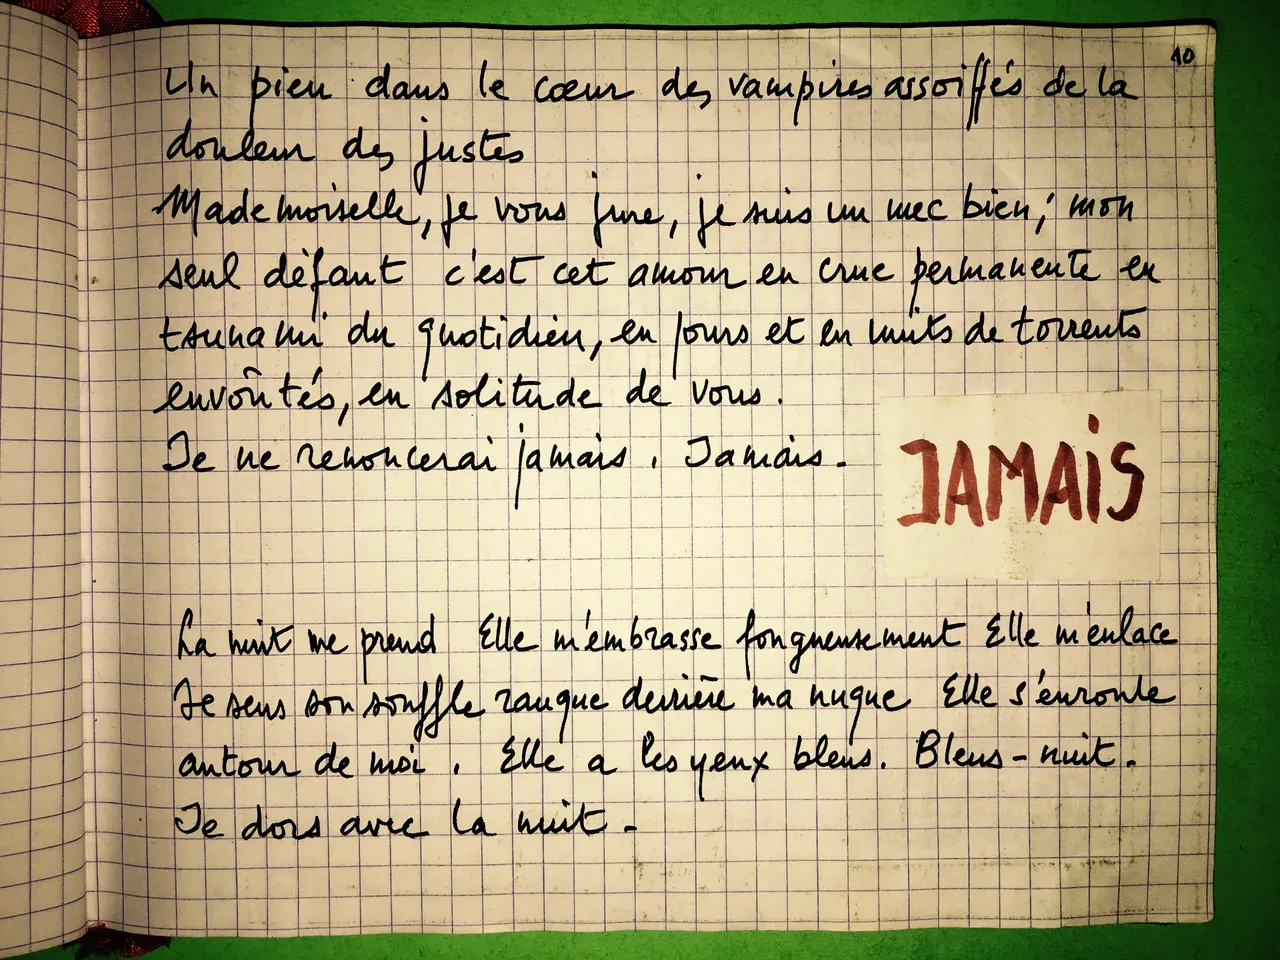 10
Un pieu dans le cœur des vampires assoiffés de la
douleur des justes
Mademoiselle, je vous jure, je suis un mec bien ; mon
seul défaut c'est cet amour en crue permanente en
tsunami du quotidien, en jours et en nuits de torrents
envoûtés, en solitude de vous.
Je ne renoncerai jamais. Jamais.
JAMAIS
La nuit me prend Elle m'embrasse fougueusement Elle m'enlace
Je sens son souffle rauque derrière ma nuque Elle s'enroule
autour de moi. Elle a les yeux bleus. Bleus-nuit.
Je dors avec la nuit.